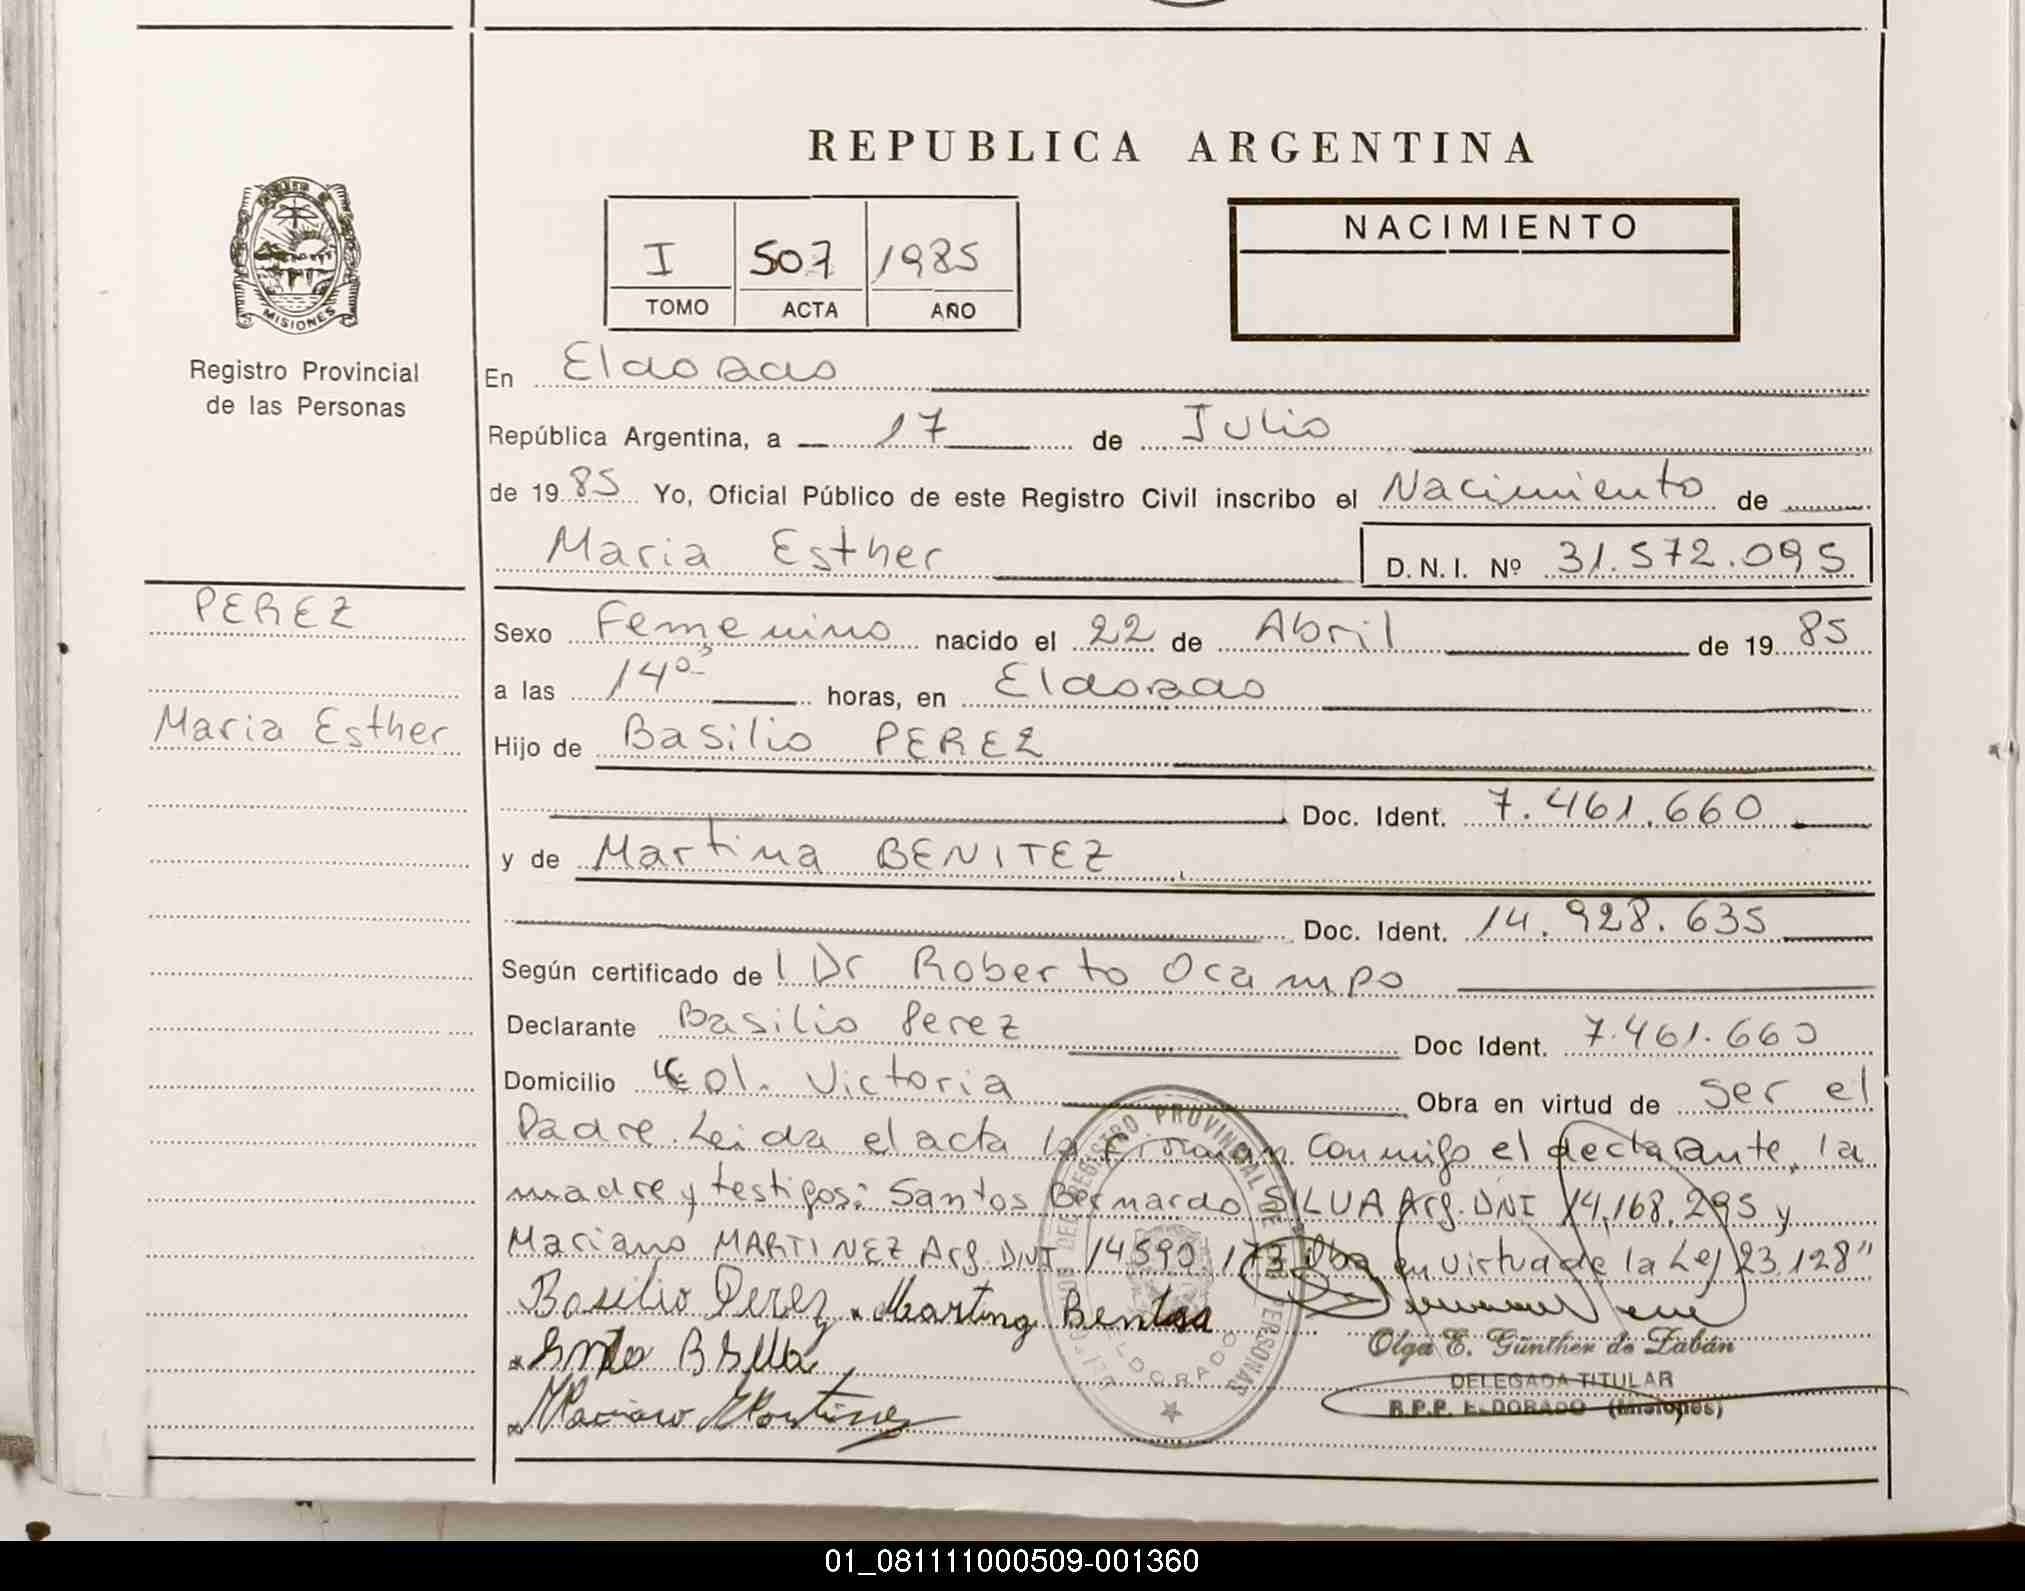 REPUBLICA ARGENTINA
I 507 1985
TOMO ACTA AÑO
NACIMIENTO
MISIONES
Registro Provincial
de las Personas
PEREZ
Maria Esther
En Eldorado
República Argentina, a 17 de Julio
de 1985 Yo, Oficial Público de este Registro Civil inscribo el Nacimiento de
Maria Esther D.N.I. Nº 31.572.095
Sexo Femenino nacido el 22 de Abril de 1985
a las 14º horas, en Eldorado
Hijo de Basilio PEREZ
Doc. Ident. 7.461.660
y de Martina BENITEZ
Doc. Ident. 14.928.635
Según certificado de l Dr Roberto Ocampo
Declarante Basilio Perez Doc Ident. 7.461.660
Domicilio Col. Victoria Obra en virtud de ser el
Padre. Leida el acta la firman conmigo el declarante, la
madre y testigos: Santos Bernardo SILVA Arg. DNI 14.168.295 y
Mariano MARTINEZ Arg. DNI 14590.173 en virtud de la Ley 23.128"
Basilio Perez Martina
Mariano Martinez
REGISTRO PROVINCIAL DE LAS PERSONAS
ELDORADO
Olga E. Günther de Zabán
DELEGADA TITULAR
R.P.P. ELDORADO (Misiones)
01_081111000509-001360